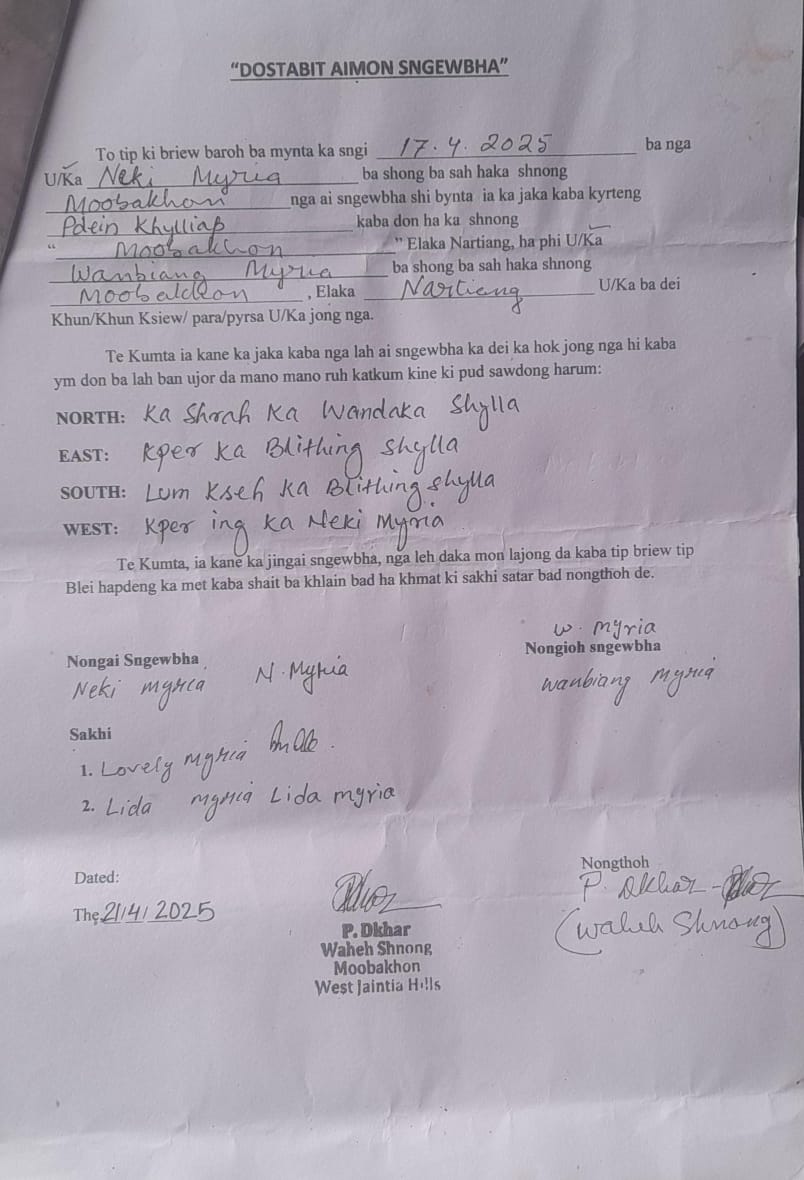 “DOSTABIT AIMON SNGEWBHA”
To tip ki briew baroh ba mynta ka sngi 17.4.2025 ba nga
U/Ka Neki Myria ba shong ba sah haka shnong
Moobakhon nga ai sngewbha shi bynta ia ka jaka kaba kyrteng
Pdein Khylliap kaba don ha ka shnong
“ Moobakhon ” Elaka Nartiang, ha phi U/Ka
Wanbiang Myria ba shong ba sah haka shnong
Moobakhon, Elaka Nartiang U/Ka ba dei
Khun/Khun Ksiew/ para/pyrsa U/Ka jong nga.
Te Kumta ia kane ka jaka kaba nga lah ai sngewbha ka dei ka hok jong nga hi kaba
ym don ba lah ban ujor da mano mano ruh katkum kine ki pud sawdong harum:
NORTH: Ka Shrah Ka Wandaka Shylla
EAST: Kper Ka Blithing Shylla
SOUTH: Lum Kseh Ka Blithing Shylla
WEST: Kper ing Ka Neki Myria
Te Kumta, ia kane ka jingai sngewbha, nga leh daka mon lajong da kaba tip briew tip
Blei hapdeng ka met kaba shait ba khlain bad ha khmat ki sakhi satar bad nongthoh de.
W. Myria
Nongai Sngewbha Nongioh sngewbha
Neki Myria N. Myria Wanbiang Myria
Sakhi
1. Lovely Myria
2. Lida Myria Lida Myria
Dated: Nongthoh
The 21/4/2025 P. Dkhar
(Waheh Shnong)
P. Dkhar
Waheh Shnong
Moobakhon
West Jaintia Hills